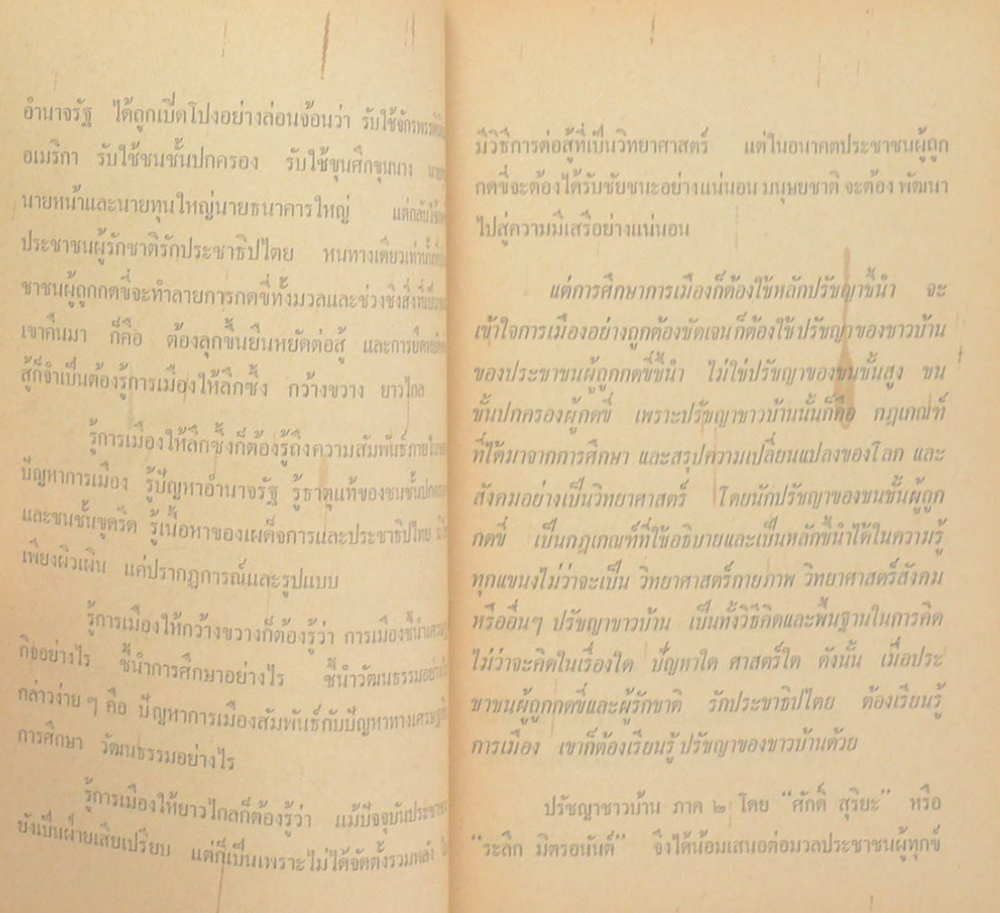 อำนาจรัฐ ได้ถูกเปิดโปงอย่างล่อนจ้อนว่า รับใช้จักรพรรดินิยม
อเมริกา รับใช้ชนชั้นปกครอง รับใช้ขุนศึกขุนนาง
นายหน้าและนายทุนใหญ่นายธนาคารใหญ่ แต่กลับใช้
ประชาชนผู้รักชาติรักประชาธิปไตย หนทางเดียวเท่านั้น
ชาชนผู้ถูกกดขี่จะทำลายการกดขี่ทั้งมวลและช่วงชิงสิ่งที่เป็นของ
เขาคืนมา ก็คือ ต้องลุกขึ้นยืนหยัดต่อสู้ และการยืนหยัดต่อ
สู้ก็จำเป็นต้องรู้การเมืองให้ลึกซึ้ง กว้างขวาง ยาวไกล
รู้การเมืองให้ลึกซึ้งก็ต้องรู้ถึงความสัมพันธ์ภายใน
ปัญหาการเมือง รู้ปัญหาอำนาจรัฐ รู้ธาตุแท้ของชนชั้นปกครอง
และชนชั้นขูดรีด รู้เนื้อหาของเผด็จการและประชาธิปไตย
เพียงผิวเผิน แค่ปรากฏการณ์และรูปแบบ
รู้การเมืองให้กว้างขวางก็ต้องรู้ว่า การเมืองชี้นำเศรษฐ
กิจอย่างไร ชี้นำการศึกษาอย่างไร ชี้นำวัฒนธรรมอย่างไร
กล่าวง่าย ๆ คือ ปัญหาการเมืองสัมพันธ์กับปัญหาทางเศรษฐกิจ
การศึกษา วัฒนธรรมอย่างไร
รู้การเมืองให้ยาวไกลก็ต้องรู้ว่า แม้ปัจจุบันประชาชน
ยังเป็นฝ่ายเสียเปรียบ แต่ก็เป็นเพราะไม่ได้จัดตั้งรวมพลัง
มีวิธีการต่อสู้ที่เป็นวิทยาศาสตร์ แต่ในอนาคตประชาชนผู้ถูก
กดขี่จะต้องได้รับชัยชนะอย่างแน่นอน มนุษยชาติ จะต้อง พัฒนา
ไปสู่ความมีเสรีอย่างแน่นอน
แต่การศึกษาการเมืองก็ต้องใช้หลักปรัชญาชี้นำ จะ
เข้าใจการเมืองอย่างถูกต้องชัดเจนก็ต้องใช้ ปรัชญาของชาวบ้าน
ของประชาชนผู้ถูกกดขี่ชี้นำ ไม่ใช่ปรัชญาของชนชั้นสูง ชน
ชั้นปกครองผู้กดขี่ เพราะปรัชญาชาวบ้านนั้นก็คือ กฎเกณฑ์
ที่ได้มาจากการศึกษา และสรุปความเปลี่ยนแปลงของโลก และ
สังคมอย่างเป็นวิทยาศาสตร์ โดยนักปรัชญาของชนชั้นผู้ถูก
กดขี่ เป็นกฎเกณฑ์ที่ใช้อธิบายและเป็นหลักชี้นำได้ในความรู้
ทุกแขนงไม่ว่าจะเป็น วิทยาศาสตร์กายภาพ วิทยาศาสตร์สังคม
หรืออื่นๆ ปรัชญาชาวบ้าน เป็นทั้งวิธีคิดและพื้นฐานในการคิด
ไม่ว่าจะคิดในเรื่องใด ปัญหาใด ศาสตร์ใด ดังนั้น เมื่อประ
ชาชนผู้ถูกกดขี่และผู้รักชาติ รักประชาธิปไตย ต้องเรียนรู้
การเมือง เขาก็ต้องเรียนรู้ ปรัชญาของชาวบ้านด้วย
ปรัชญาชาวบ้าน ภาค ๒ โดย “ศักดิ์ สุริยะ” หรือ
“ระลึก มิตรอนันต์” จึงได้น้อมเสนอต่อมวลประชาชนผู้ทุกข์